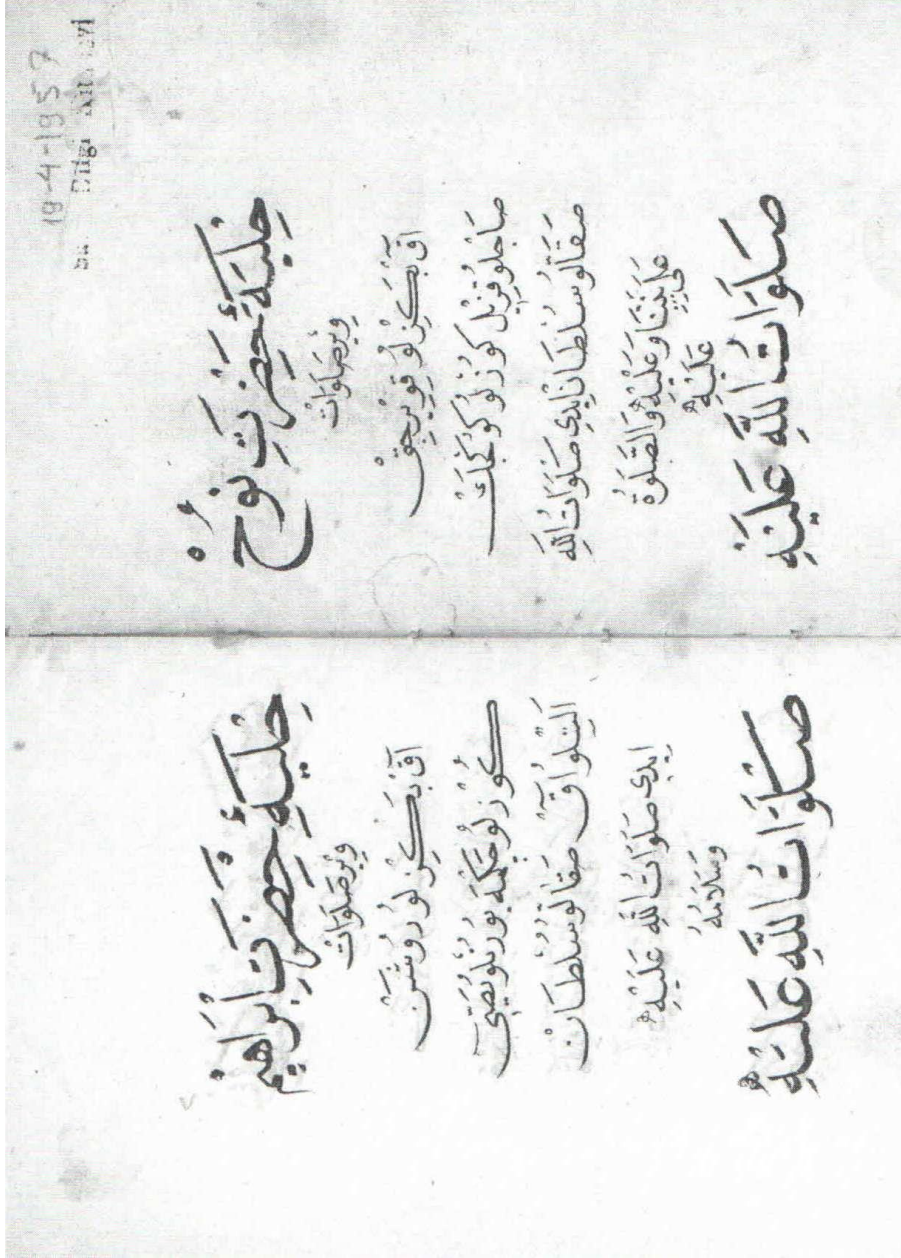 18-4-1957
حِلْيَهٔ حَضْرَتِ نُوحْ
وِيرْصَلَوَاتْ
آقْ بَكِزْلُو قِوِيرْجِقْ
صَاجْلُو قِزِلْ كُوزْلُو كُوكْجَكْ
صَقَاللُو سُلْطَانْ اِيدِى صَلَوَاتُ اللّٰهِ
عَلَى نَبِيِّنَا وَعَلَيْهِ وَالصَّلَوةُ
عَلَيْهِ
صَلَوَاتُ اللّٰهِ عَلَيْهِ
حِلْيَهٔ حَضْرَتِ اِبْرَاهِيمْ
وِيرْصَلَوَاتْ
آقْ بَكِزْلُو رُوشَنْ
كُوزْلُو چَكْمَه بُورُنْلُو يَصِّى
آقْ صَقَاللُو سُلْطَانْ
اِيدِى صَلَوَاتُ اللّٰهِ عَلَيْهِ
وَسَلَامُهُ
صَلَوَاتُ اللّٰهِ عَلَيْهِ